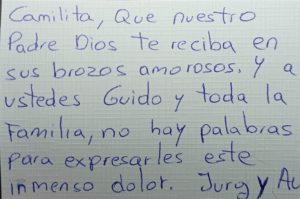 Camilita, Que nuestro
Padre Dios te reciba en
sus brozos amorosos. y a
ustedes Guido y toda la
Familia, no hay palabras
para expresarles este
inmenso dolor. Jurg y Au